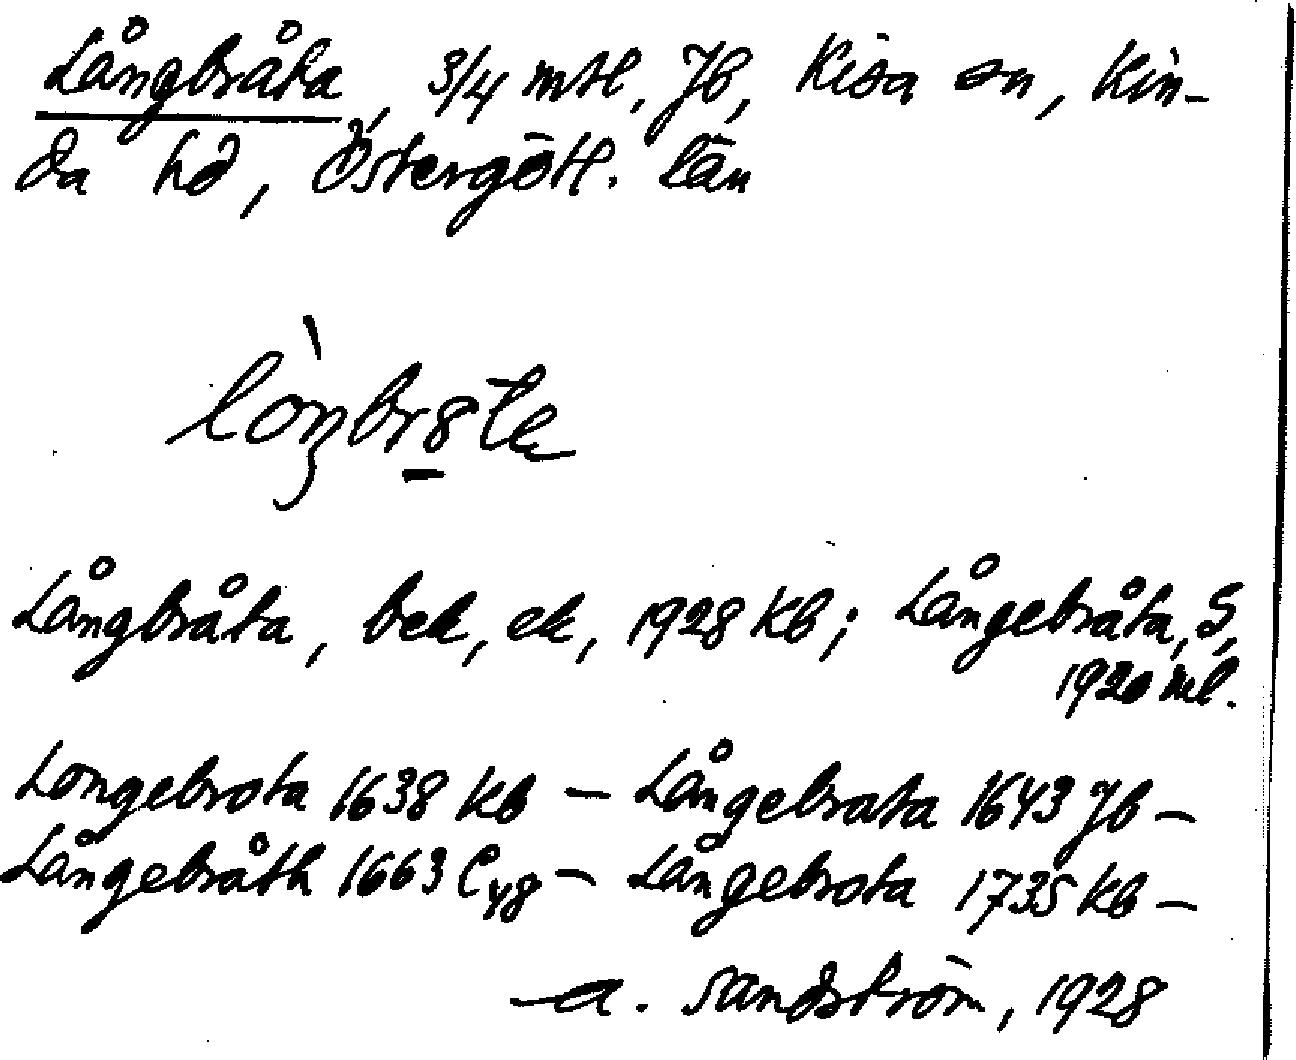 Långbråta, 3/4 mtl, Jb, Kisa sn, Kin-
da hd, Östergötl. län
Långbråta, bek, ek, 1928 Kb; Långebråta, S,
1920 ml.
Longebrota 1638 Kb – Långebrata 1643 Jb –
Långebråth 1663 C48 – Långebrota 1735 Kb –
A. Sandström, 1928